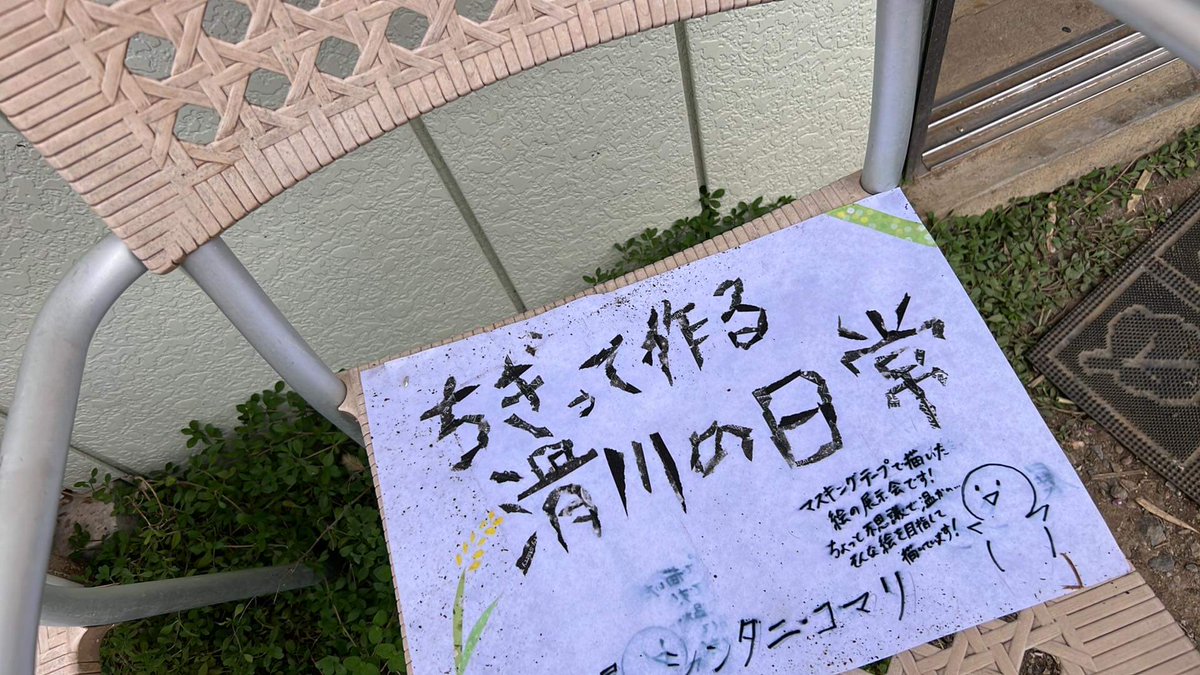 ちぎって作る
滑川の日常
マスキングテープで描いた
絵の展示会です!
ちょっと不思議で、温かい…
そんな絵を目指して
描いています!
シャンタニ・コマリ